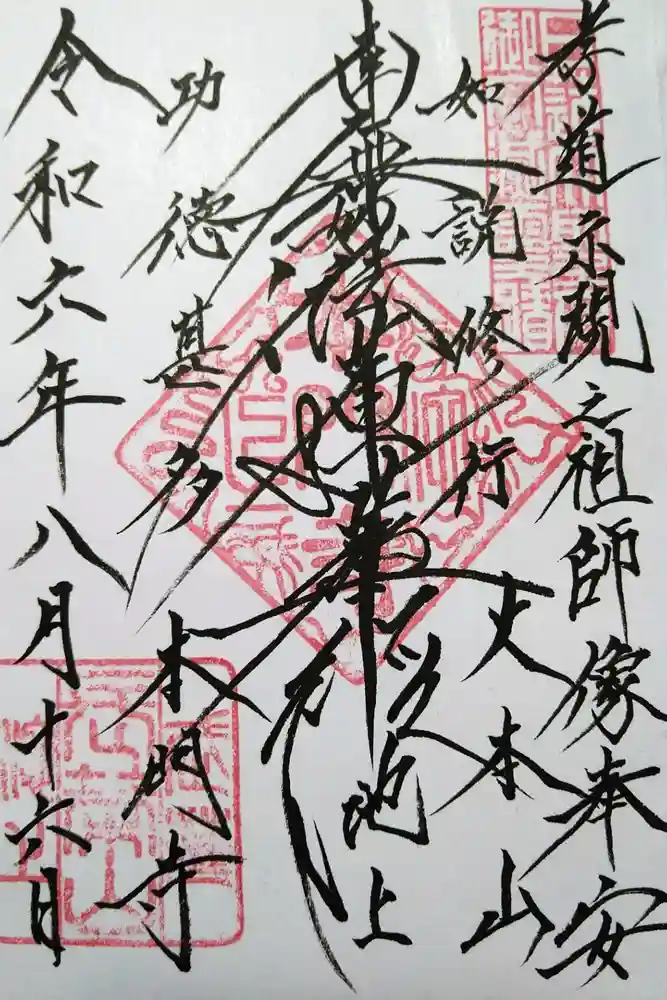 孝道示現之祖師像奉安
如説修行
大本山
南無妙法蓮華経
池上
功徳甚多
本門寺
令和六年八月十六日